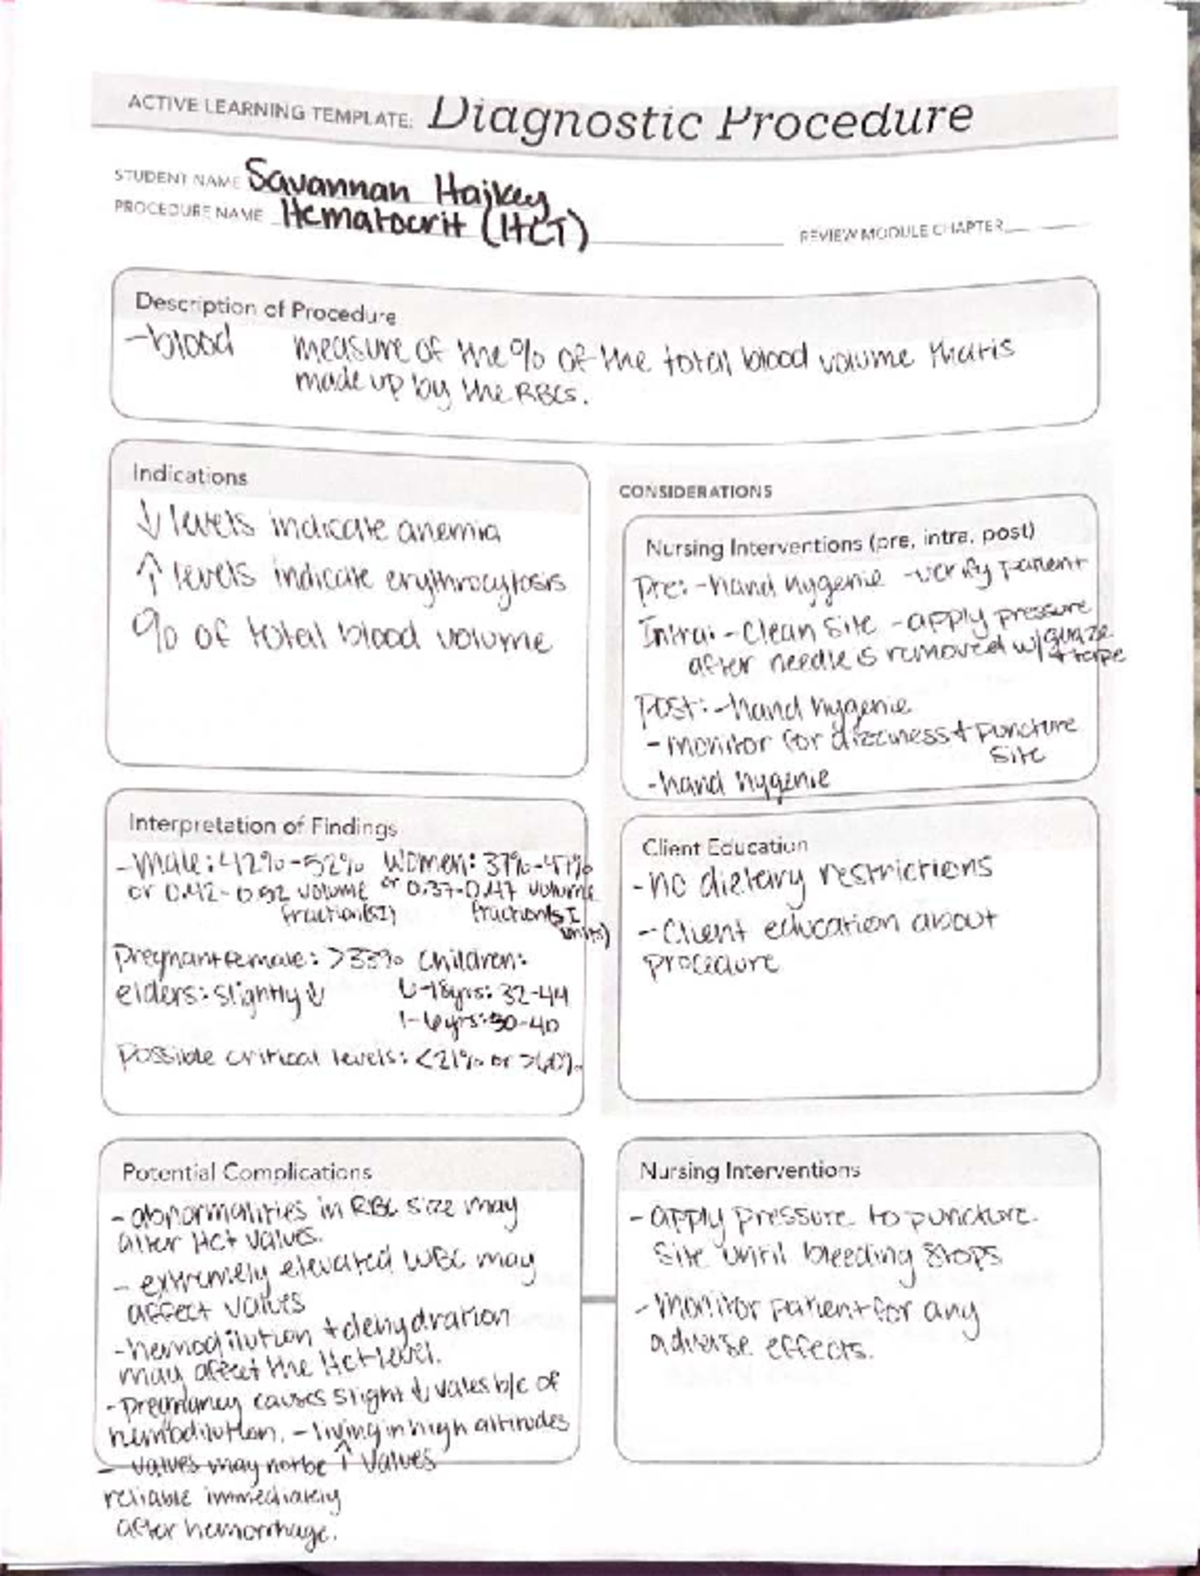 ACTIVE LEARNING TEMPLATE: Diagnostic Procedure
STUDENT NAME Savannah Hajkey
PROCEDURE NAME Hematocrit (HCT)
REVIEW MODULE CHAPTER
Description of Procedure
-blood measure of the % of the total blood volume that is
made up by the RBCs.
Indications
↓ levels indicate anemia
↑ levels indicate erythrocytosis
% of total blood volume
CONSIDERATIONS
Nursing Interventions (pre, intra, post)
Pre: -hand hygenie -verify patient
Intra: -Clean site -apply pressure
after needle is removed w/ guaze
+ tape
Post: -hand hygenie
-monitor for dizziness + puncture
site
-hand hygenie
Interpretation of Findings
-Male: 42%-52% Women: 37%-47%
or 0.42-0.52 volume or 0.37-0.47 volume
fraction(SI) fraction(SI
units)
Pregnant female: >33% Children:
elders: slightly ↓ 6-18yrs: 32-44
1-6yrs: 30-40
Possible critical levels: <21% or >60%
Client Education
-no dietary restrictions
-Client education about
procedure
Potential Complications
-abnormalities in RBC size may
alter Hct values.
-extremely elevated WBC may
affect values
-hemodilution + dehydration
may affect the Hct level.
-Pregnancy causes slight ↓ vales b/c of
hemodilution. -living in high altitudes
↑ values
- values may not be
reliable immediately
after hemorrhage.
Nursing Interventions
-apply pressure to puncture
site until bleeding stops
-Monitor patient for any
adverse effects.